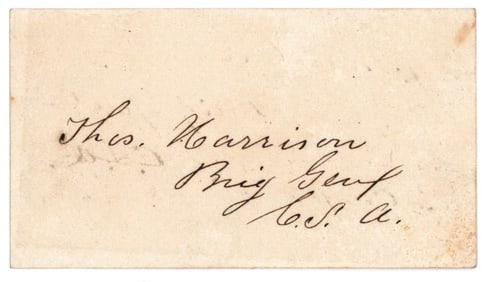 Thos. Harrison
Brig Genl
C.S. A.